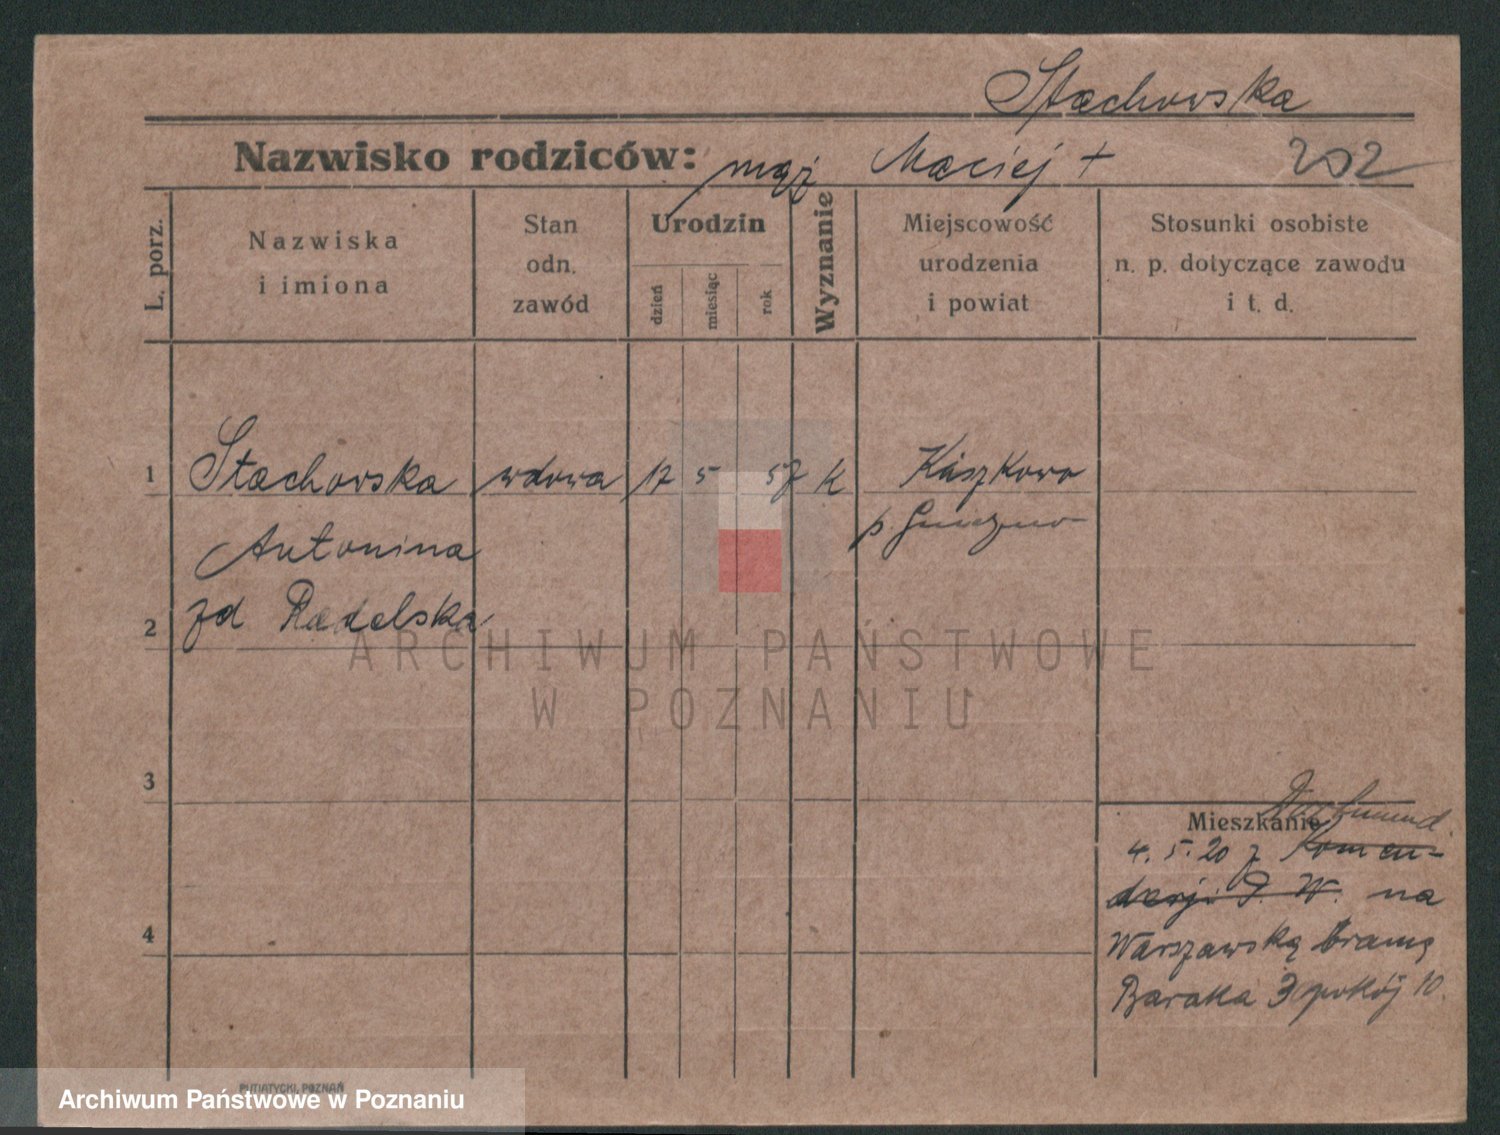 Stachowska
Nazwisko rodziców: mąż Maciej + 202
L. porz.
Nazwiska
i imiona
Stan
odn.
zawód
Urodzin
dzień
miesiąc
rok
Wyznanie
Miejscowość
urodzenia
i powiat
Stosunki osobiste
n. p. dotyczące zawodu
i t. d.
1 Stachowska wdowa 17 5 57 k Kiszkowo
p. Gniezno
Antonina
2 zd Radelska
ARCHIWUM PAŃSTWOWE
W POZNANIU
3
Dortmund
Mieszkanie
4. 5. 20 z Komen-
4
dacji P. W. na
Warszawską bramę
Baraka 3 pokój 10.
PUTIATYCKI, POZNAŃ
Archiwum Państwowe w Poznaniu